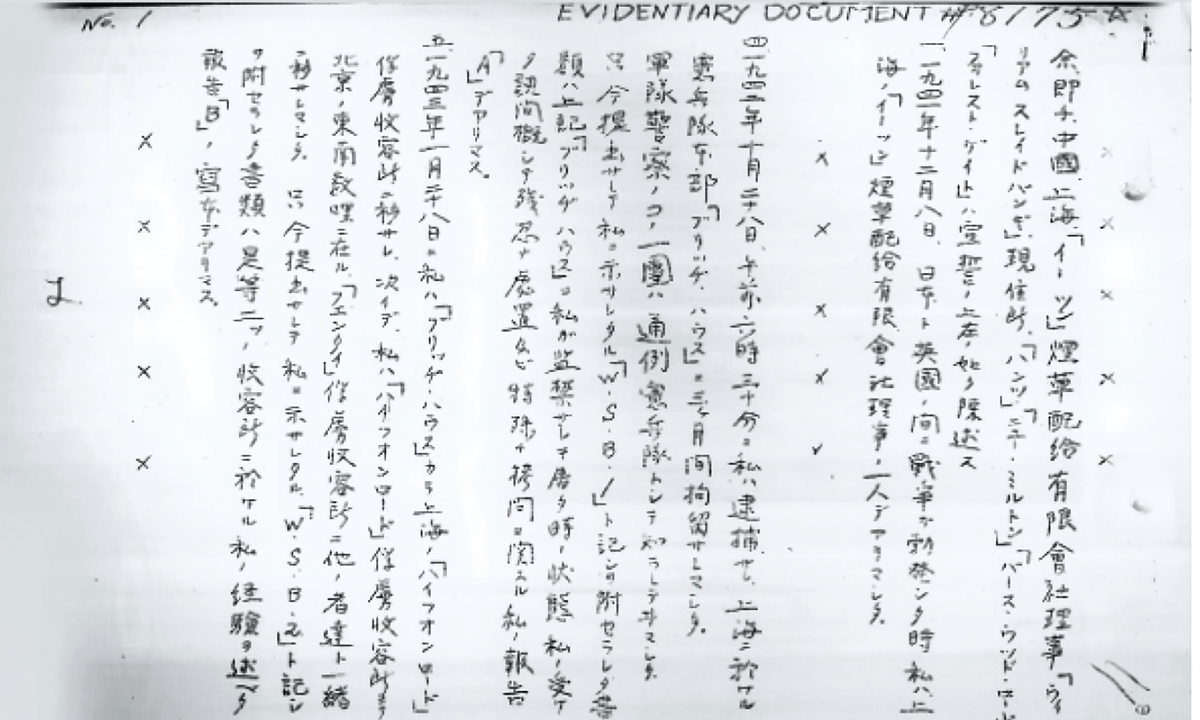 No. 1
EVIDENTIARY DOCUMENT # 8175
余即チ中國上海「イーツ」煙草配給有限會社理事「ウィ
リアム スレイド バンギ」現住所、「ハンツ」ニュー・ミルトン」「バース・ウッド・ロー
「フォレスト・ゲイト」ハ宣誓ノ上左ノ如ク陳述ス
一、一九四一年十二月八日、日本ト英國ノ間ニ戰爭ガ勃発シタ時私ハ上
海ノ「イーツ」煙草配給有限會社理事ノ一人デアリマシタ。
x x x x
四、一九四二年十月二十八日、午前六時三十分ニ私ハ逮捕サレ、上海ニ於ケル
憲兵隊本部「ブリッヂ、ハウス」ニ三ヶ月間拘留サレマシタ。
軍隊警察ノコノ一團ハ通例憲兵隊トシテ知ラレテヰマシタ。
只今提出サレテ私ニ示サレタル「W.S.B.1」ト記シ附セラレタ書
類ハ上記「ブリッヂ ハウス」ニ私ガ監禁サレテ居タ時ノ状態 私ノ受ケ
タ訊問概シテ残忍ナ處置など特殊ナ拷問ニ関スル私ノ報告
「A」デアリマス。
五、一九四三年一月二十八日ニ私ハ「ブリッヂ・ハウス」カラ上海ノ「ハイフオンロード」
俘虜收容所ニ移サレ、次イデ、私ハ「ハイフオンロード」俘虜收容所ヨリ
北京ノ東南数哩ニ在ル「フエンタイ」俘虜収容所ニ他ノ者達ト一緒
ニ移サレマシタ。只今提出サレテ私ニ示サレタル「W.S.B.2」ト記シ
ヲ附セラレタ書類ハ是等二ツノ收容所ニ於ケル私ノ経驗ヲ述ベタ
報告「B」ノ寫本デアリマス。
x x x x x